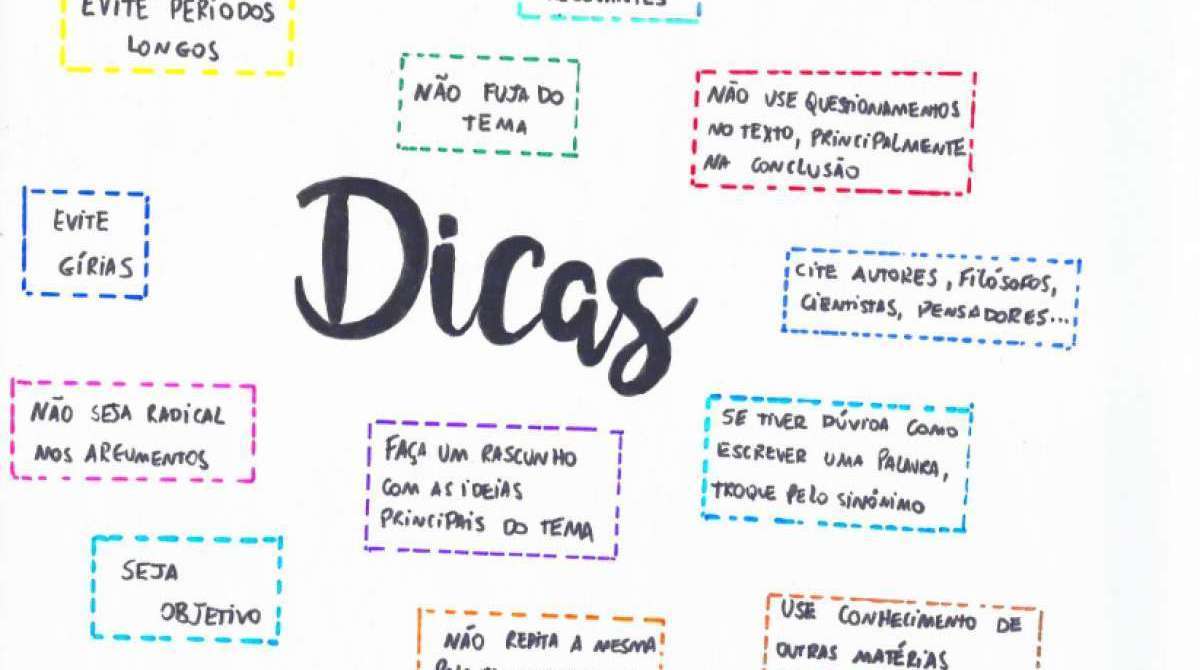 EVITE PERÍODOS
LONGOS
NÃO FUJA DO
TEMA
NÃO USE QUESTIONAMENTOS
NO TEXTO, PRINCIPALMENTE
NA CONCLUSÃO
EVITE
GÍRIAS
Dicas
CITE AUTORES, FILÓSOFOS,
CIENTISTAS, PENSADORES...
NÃO SEJA RADICAL
NOS ARGUMENTOS
FAÇA UM RASCUNHO
COM AS IDEIAS
PRINCIPAIS DO TEMA
SE TIVER DÚVIDA COMO
ESCREVER UMA PALAVRA,
TROQUE PELO SINÔNIMO
SEJA
OBJETIVO
NÃO REPITA A MESMA
USE CONHECIMENTO DE
OUTRAS MATÉRIAS